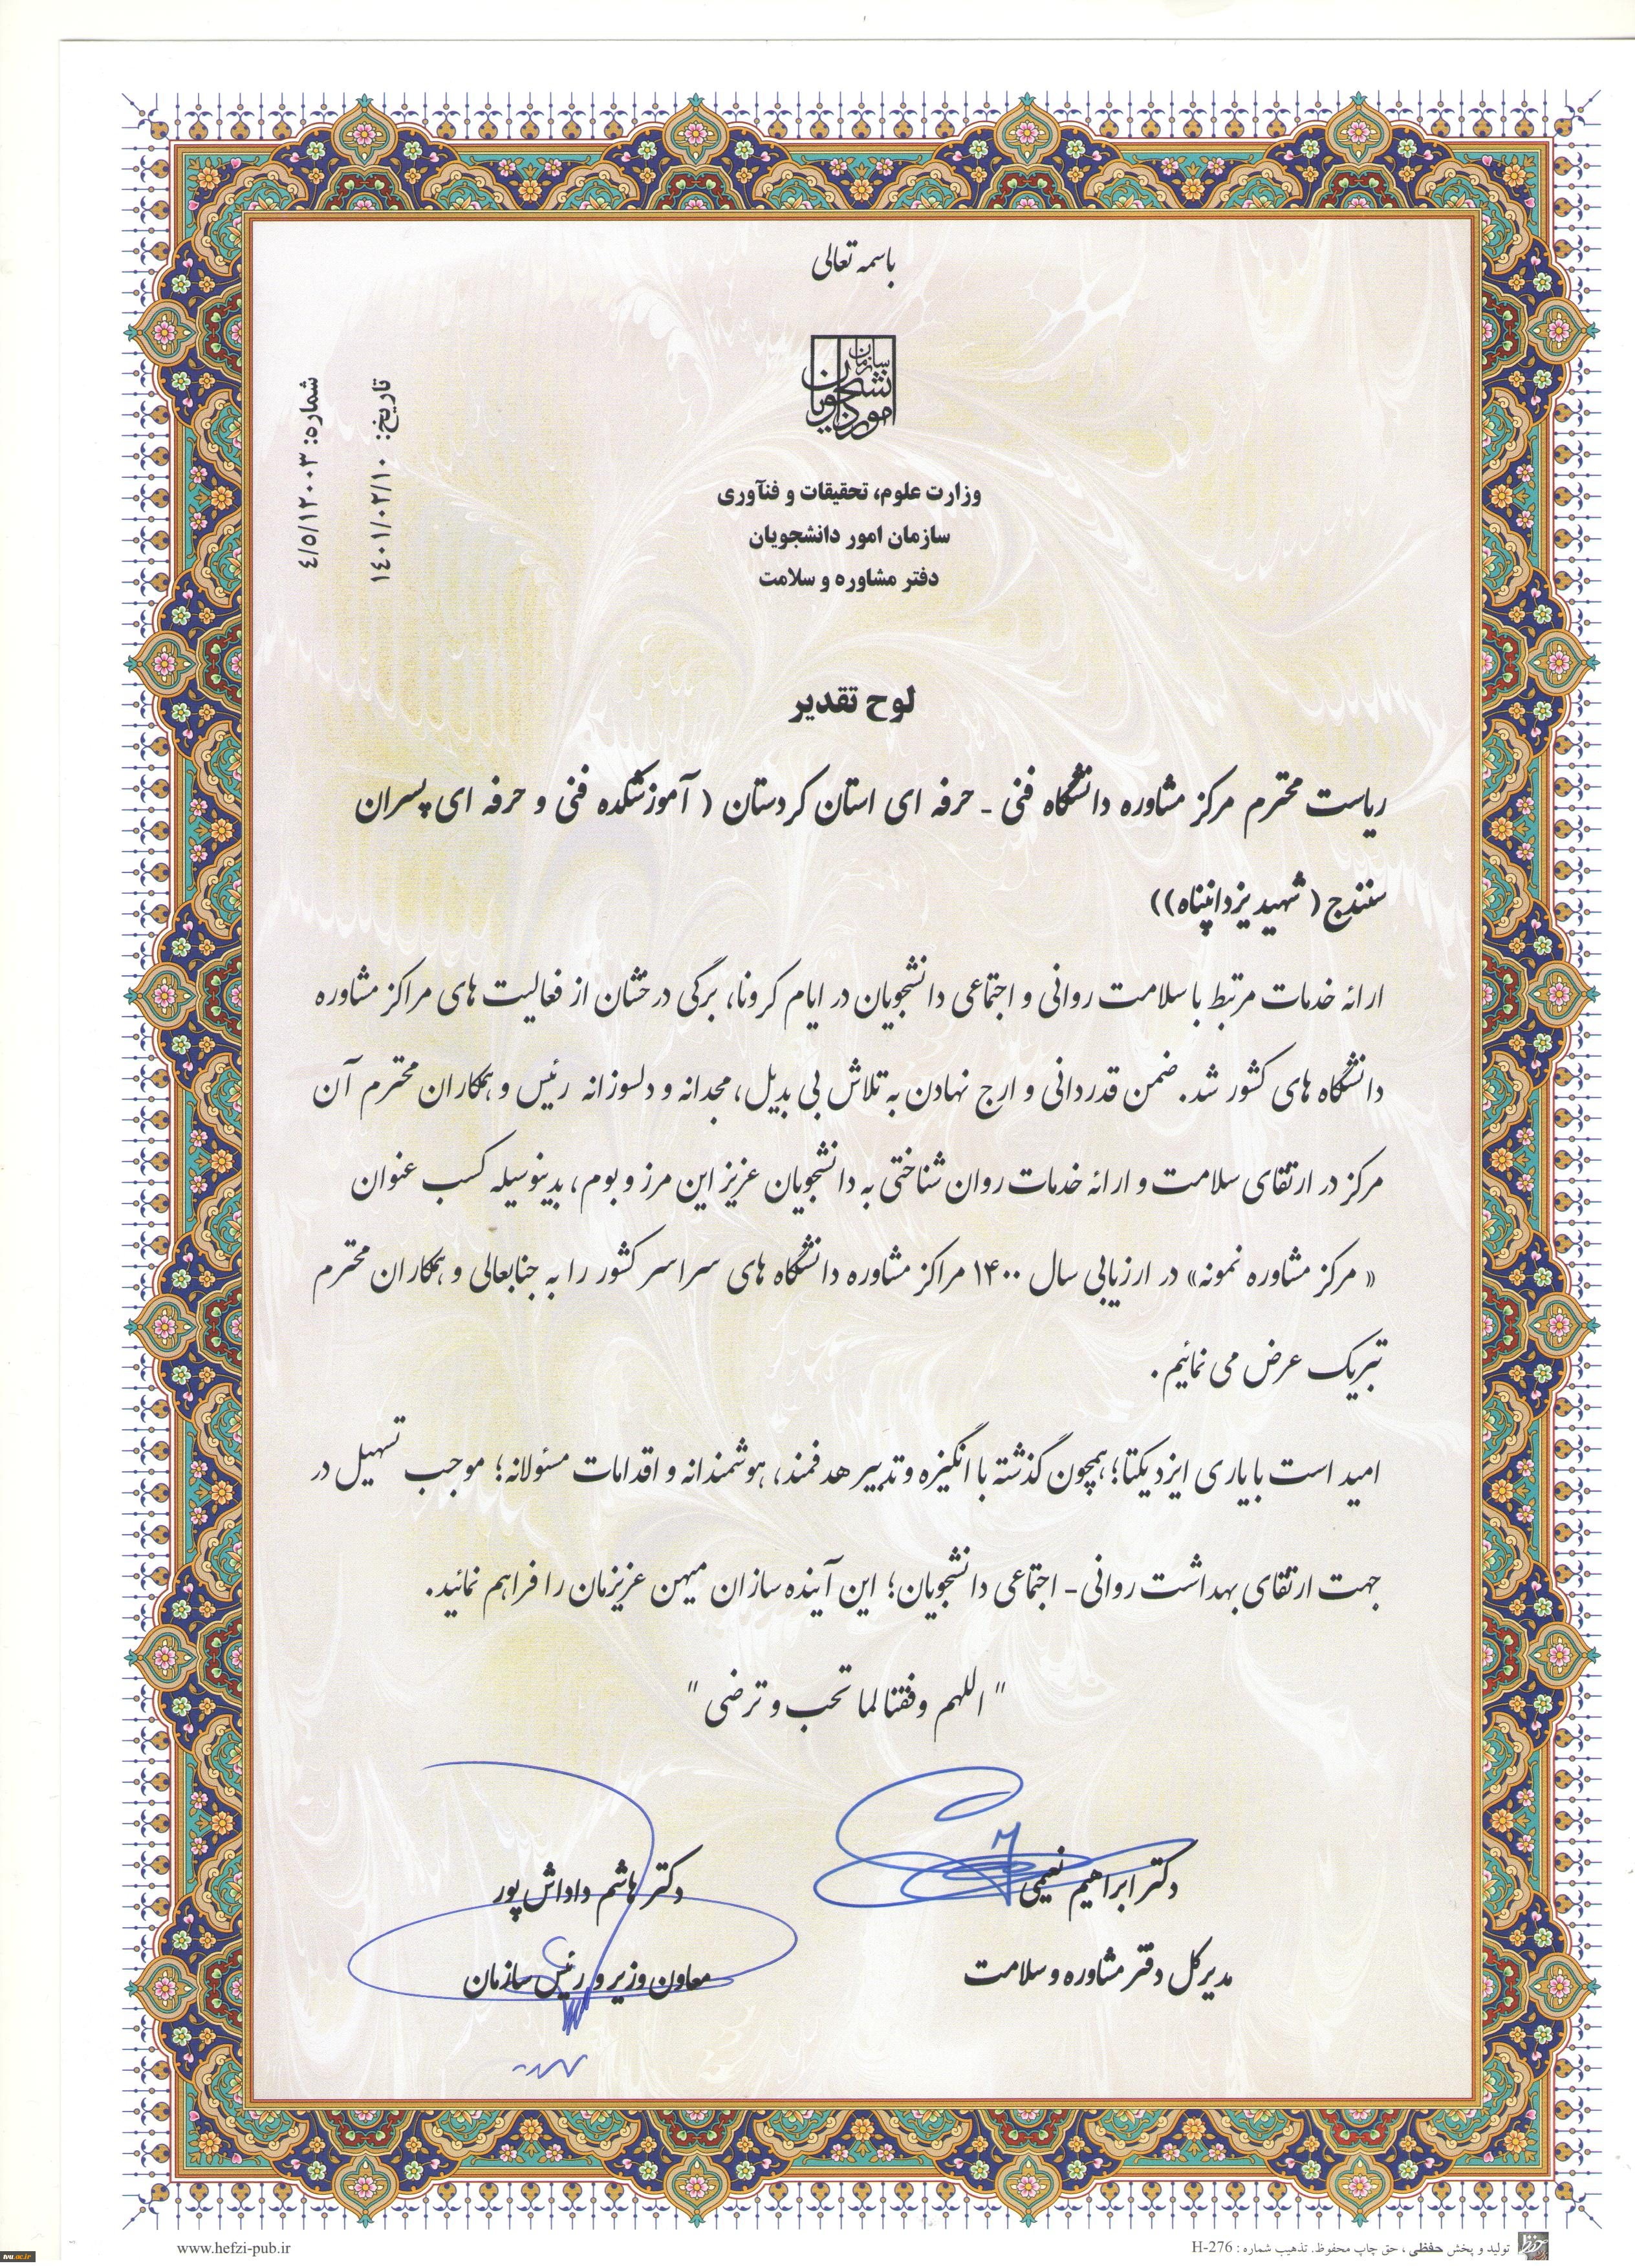 باسمه تعالی
سازمان امور دانشجویان
شماره: ٤/٥/١٢٠٠٣
تاریخ: ١٤٠١/٠٢/١٠
وزارت علوم، تحقیقات و فنآوری
سازمان امور دانشجویان
دفتر مشاوره و سلامت
لوح تقدیر
ریاست محترم مرکز مشاوره دانشگاه فنی - حرفه ای استان کردستان ( آموزشکده فنی و حرفه ای پسران
سنندج ( شهید یزدانپناه))
ارائه خدمات مرتبط با سلامت روانی و اجتماعی دانشجویان در ایام کرونا، برگی درخشان از فعالیت های مراکز مشاوره
دانشگاه های کشور شد. ضمن قدردانی و ارج نهادن به تلاش بی بدیل، مجدانه و دلسوزانه رئیس و همکاران محترم آن
مرکز در ارتقای سلامت و ارائه خدمات روان شناختی به دانشجویان عزیز این مرز و بوم، بدینوسیله کسب عنوان
« مرکز مشاوره نمونه» در ارزیابی سال ۱۴۰۰ مراکز مشاوره دانشگاه های سراسر کشور را به جنابعالی و همکاران محترم
تبریک عرض می نمائیم.
امید است با یاری ایزد یکتا؛ همچون گذشته با انگیزه و تدبیر هدفمند، هوشمندانه و اقدامات مسئولانه؛ موجب تسهیل در
جهت ارتقای بهداشت روانی - اجتماعی دانشجویان؛ این آینده سازان میهن عزیزمان را فراهم نمائید.
" اللهم وفقنا لما تحب و ترضی "
دکتر ابراهیم نعیمی
مدیرکل دفتر مشاوره و سلامت
دکتر هاشم داداش پور
معاون وزیر و رئیس سازمان
www.hefzi-pub.ir
تولید و پخش حفظی ، حق چاپ محفوظ. تذهیب شماره : H-276
tvu.ac.ir